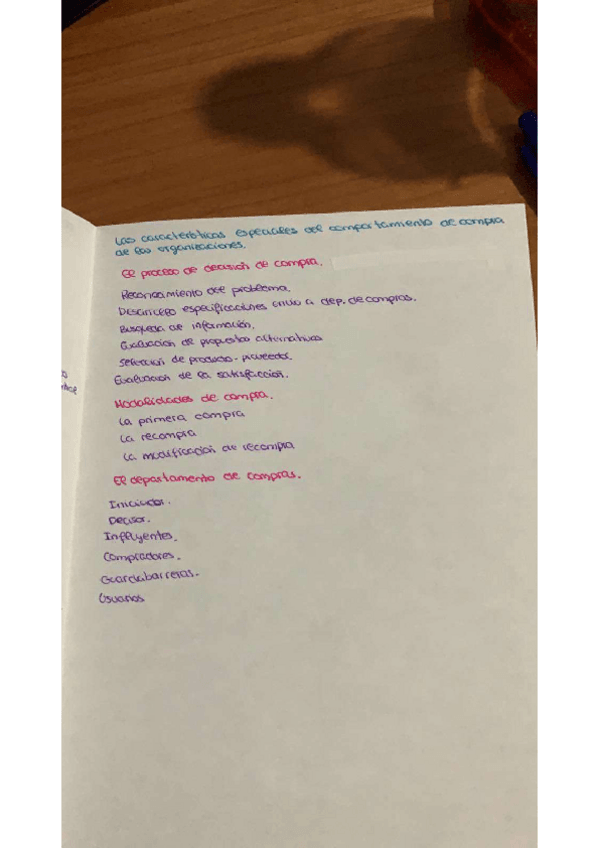 Las características especiales del comportamiento de compra
de las organizaciones.
El proceso de decisión de compra.
Reconocimiento del problema.
especificaciones envio a dep. de compras.
Busqueda de información.
Evaluacion de propuestas alternativas
Selección de producto - proveedor.
Evaluacion de la satisfaccion.
Modalidades de compra.
La primera compra
La recompra
La modificacion de recompra
El departamento de compras.
Iniciador.
Decisor.
Influyentes.
Compradores.
Guardabarreras.
Usuarios